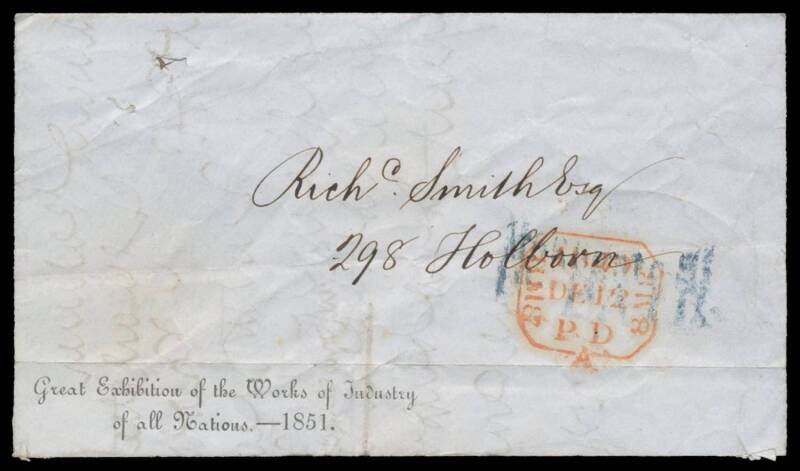 Richᵈ. Smith Esq
298 Holborn
DE 12
P.D
A
Great Exhibition of the Works of Industry
of all Nations.—1851.